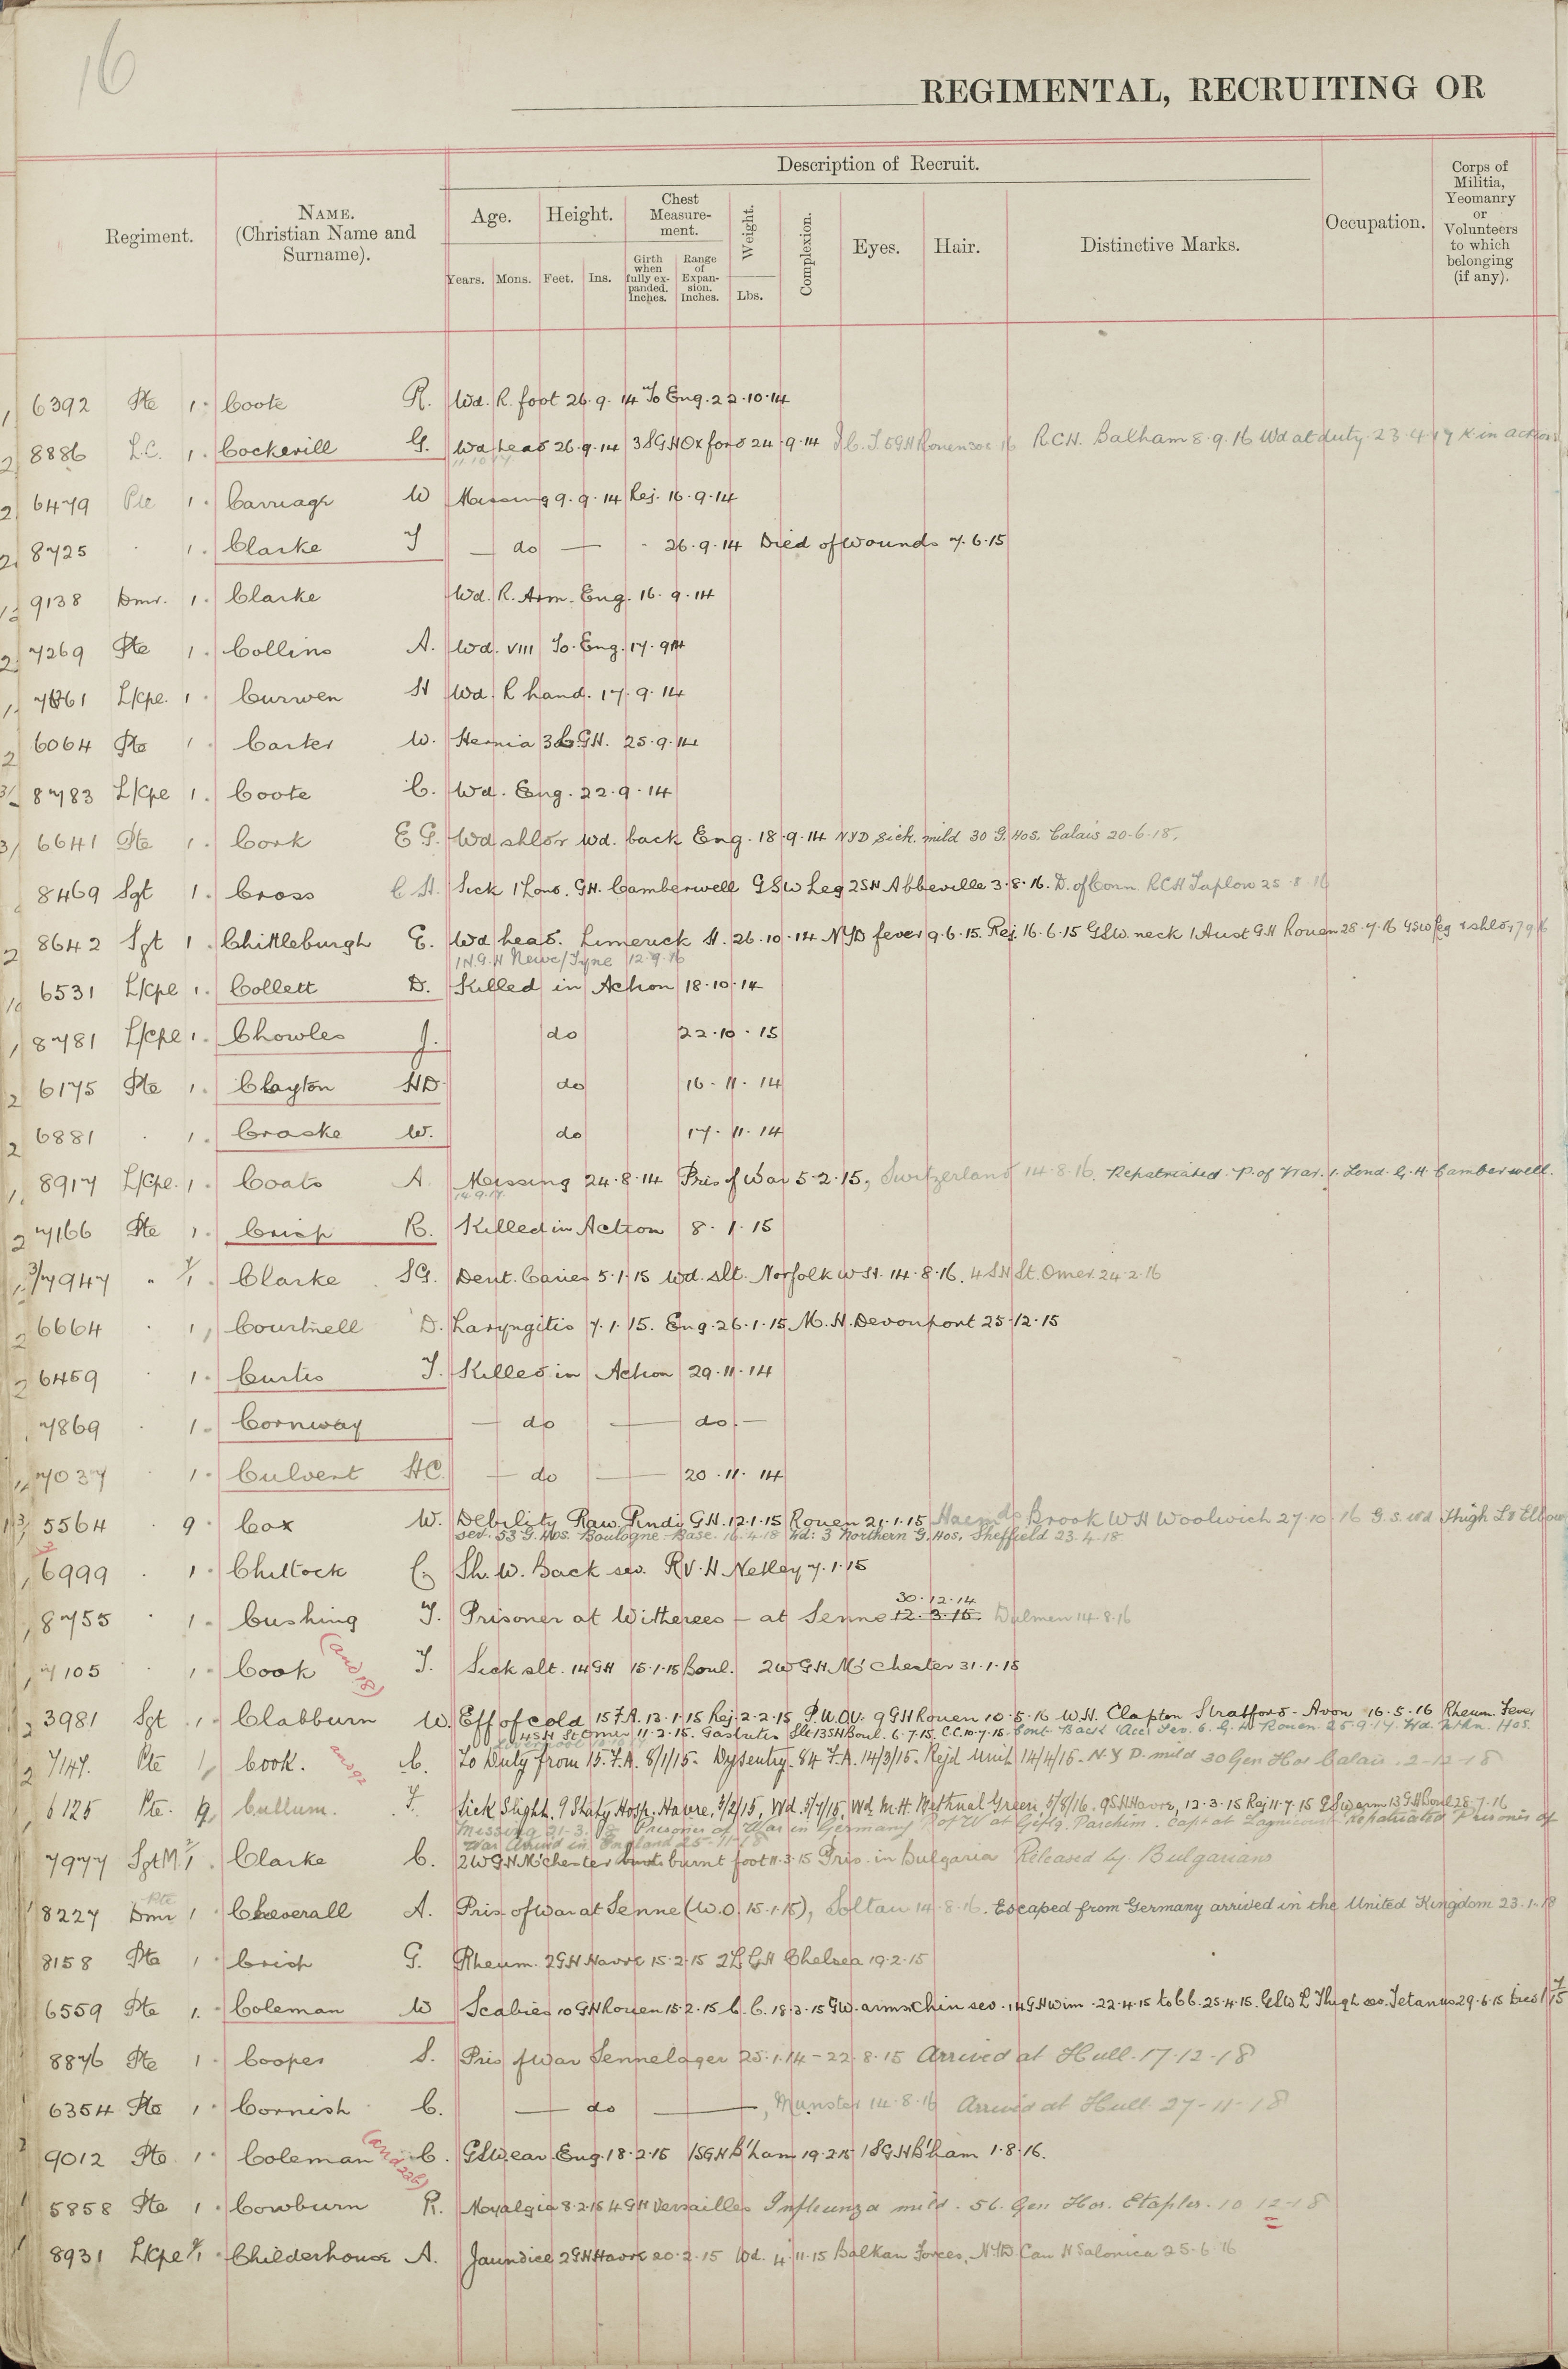 16
REGIMENTAL, RECRUITING OR
Description of Recruit.
Regiment.
NAME.
(Christian Name and
Surname).
Age.
Height.
Chest
Measure-
ment.
Weight.
Complexion.
Eyes.
Hair.
Distinctive Marks.
Occupation.
Corps of
Militia,
Yeomanry
or
Volunteers
to which
belonging
(if any).
Years.
Mons.
Feet.
Ins.
Girth
when
fully ex-
panded.
Inches.
Range
of
Expan-
sion.
Inches.
Lbs.
1, 6392 Pte 1. Coote R. Wd. R. foot 26.9.14 To Eng. 22.10.14
2, 8886 L.C. 1. Cockerill G. Wd head 26.9.14 3SGH Oxford 24.9.14 RCH. Balham 8.9.16 Wd at duty 23.4.17 K in action
11.10.17
2, 6479 Pte 1. Carriage W Missing 9.9.14 Rej. 16.9.14
2, 8725 . 1. Clarke T — do — . 26.9.14 Died of Wounds 7.6.15
9138 Dmr. 1. Clarke Wd. R. Arm. Eng. 16.9.14
2, 7269 Pte 1. Collins A. Wd. VIII To. Eng. 17.9.14
1, L/Cpe. 1. Curwen H Wd. R hand. 17.9.14
2 6064 Pte 1. Carter W. Hernia 3 GH. 25.9.14
8783 L/Cpe 1. Coote C. Wd. Eng. 22.9.14
3/ 6641 Pte 1. Cork E G. Wd shldr wd. back Eng. 18.9.14 NYD sick. mild 30 G. Hos. Calais 20-6-18.
8469 Sgt 1. Cross C H. Sick 1 Lond. GH. Camberwell GSW Leg 2SH Abbeville 3.8.16. D. of Conn. RCH Taplow 25.8.16
2 8642 Sgt 1. Chittleburgh E. Wd head. Limerick H. 26.10.14 NYD fever 9.6.15. Rej. 16.6.15 GSW. neck 1 Aust G.H Rouen 28.7.16 GSW leg & shldr 7 9 16
1 N.G.H Newc/Tyne 12.9.16
6531 L/Cpe 1. Collett D. Killed in Action 18.10.14
1 8781 L/Cpe 1. Chowles J. do 22.10.15
2 6175 Pte 1. Clayton HD. do 16.11.14
2 6881 . 1. Craske W. do 17.11.14
1, 8917 L/Cpe. 1. Coats A Missing 24.8.14 Pris of War 5.2.15, Switzerland 14.8.16. Repatriated. P. of War. 1. Lond. G. H Camberwell.
14.9.17
2 7166 Pte 1. Crisp R. Killed in Action 8.1.15
3/7947 " 1. Clarke SG. Dent. Caries 5.1.15 Wd. slt. Norfolk W H. 14.8.16. 4 SH St. Omer. 24.2.16
2 6664 . 1, Courtnell D. Laryngitis 7.1.15. Eng. 26.1.15. M. H. Devonport 25.12.15
2 6459 . 1. Curtis T. Killed in Action 29.11.14
7869 . 1. Cornway — do — do. —
7037 . 1. Culvert HC. — do — 20.11.14
5564 . 9. Cox W. Debility Raw. Pindi GH. 12.1.15 Rouen 21.1.15 Brook WH Woolwich 27.10.16 G.S. Wd Thigh Lt Elbow
sev. 53 G. Hos. Boulogne Base. 16.4.18 Wd: 3 Northern G. Hos. Sheffield 23.4.18
1 6999 . 1. Chittock C. Sh. W. Back sev. R V. H Netley 7.1.15
30.12.14
1 8755 . 1. Cushing T. Prisoner at Witherees – at Senne 12.3.15. Dulmen 14.8.16
1 7105 . 1. Cook (and 18) T. Sick slt. 14 GH 15.1.15 Boul. 2WGH M'Chester 31.1.15
2 3981 Sgt . 1. Clabburn W. Eff of cold 15 F.A. 13.1.15 Rej. 2.2.15 P.U.O. 9 GH Rouen 10.5.16 W.H. Clapton Stratford-Avon 16.5.16 Rheum. Fever
4 SH St Omer 11.2.15. Gastritis Slt 13SH Boul. 6.7.15. C.C. 10.7.15. Cont. Back Acc. Sev. 6. G. H Rouen. 25.9.17. Hos.
2 7147. Pte 1, Cook. C. To Duty from 15. F.A. 8/1/15. Dysentry. 84 F.A. 14/3/15. Rejd Unit 14/4/15. N.Y D. mild 30 Gen Hos Calais. 2-12-18
6125 Pte. 9. Cullum. F. Sick Slight. 9 Staty Hosp. Havre. 3/2/15, Wd. 5/7/15, Wd. M.H. Bethnal Green, 5/8/16. 9SH Havre, 12.3.15 Rej 11.7.15 GSW arm 13 GH Boul 28.7.16
Missing 21-3-18 Prisoner of War in Germany P of W at Parchim. Capt at Lagnicourt Repatriated Prisoner of
War Arrived in England 25-11-18
7977 SgtM. Clarke C. 2WGH M'chester burnt foot 11.3.15 Pris. in Bulgaria Released by Bulgarians
Pte
8227 Dmr 1. Cheverall A. Pris. of War at Senne (W.O. 15.1.15), Soltau 14.8.16. Escaped from Germany arrived in the United Kingdom 23.1.18
8158 Pte 1. Crisp G. Rheum. 2GH Havre 15.2.15 2LGH Chelsea 19.2.15
6559 Pte 1. Coleman W Scabies 10 GH Rouen 15.2.15 C.C. 18.3.15 GW. arm & Chin sev. 14GH Wim. 22.4.15 to C C. 25.4.15. GSW L Thigh sev. Tetanus 29.6.15 Died 1/7/15
8876 Pte 1. Cooper S. Pris of War Sennelager 25.1.14–22.8.15 Arrived at Hull. 17-12-18
6354 Pte 1. Cornish C. — do —, Munster 14.8.16 Arrived at Hull 27-11-18
9012 Pte. 1. Coleman C. GSW ear Eng. 18.2.15 1SGH B'ham 19.2.15 1SGH B'ham 1.8.16.
5858 Pte 1. Cowburn R. Myalgia 8.2.15 4 GH Versailles Influenza mild. 56. Gen Hos. Etaples. 10 12-18
8931 L/Cpe 1. Childerhouse A. Jaundice 2GH Havre 20.2.15 Wd. 4.11.15 Balkan Forces, NYD Can H Salonica 25.6.16